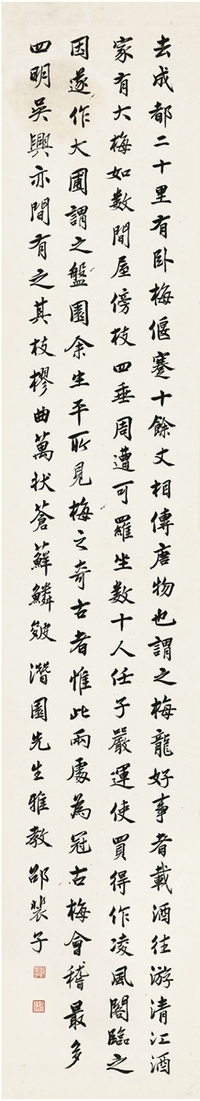 去成都二十里有臥梅偃蹇十餘丈相傳唐物也謂之梅龍好事者載酒往游清江酒
家有大梅如數間屋傍枝四垂周遭可羅坐數十人任子嚴運使買得作凌風閣臨之
因遂作大圃謂之盤園余生平所見梅之奇古者惟此兩處為冠古梅會稽最多
四明吳興亦間有之其枝樛曲萬狀蒼蘚鱗皴潛園先生雅教邵裴子